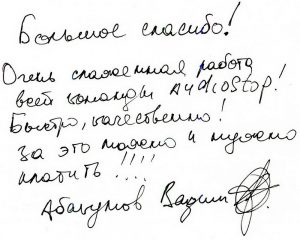 Большое спасибо!
Очень слаженная работа
всей команды AyдioStop!
Быстро, качественно!
За это можно и нужно
платить !!!!
Абакумов Вадим